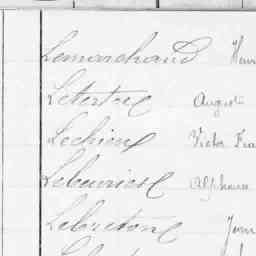 Lemarchand Henri
Letertre Auguste
Lechien Victor
Lebouries Alphonse
Lebreton